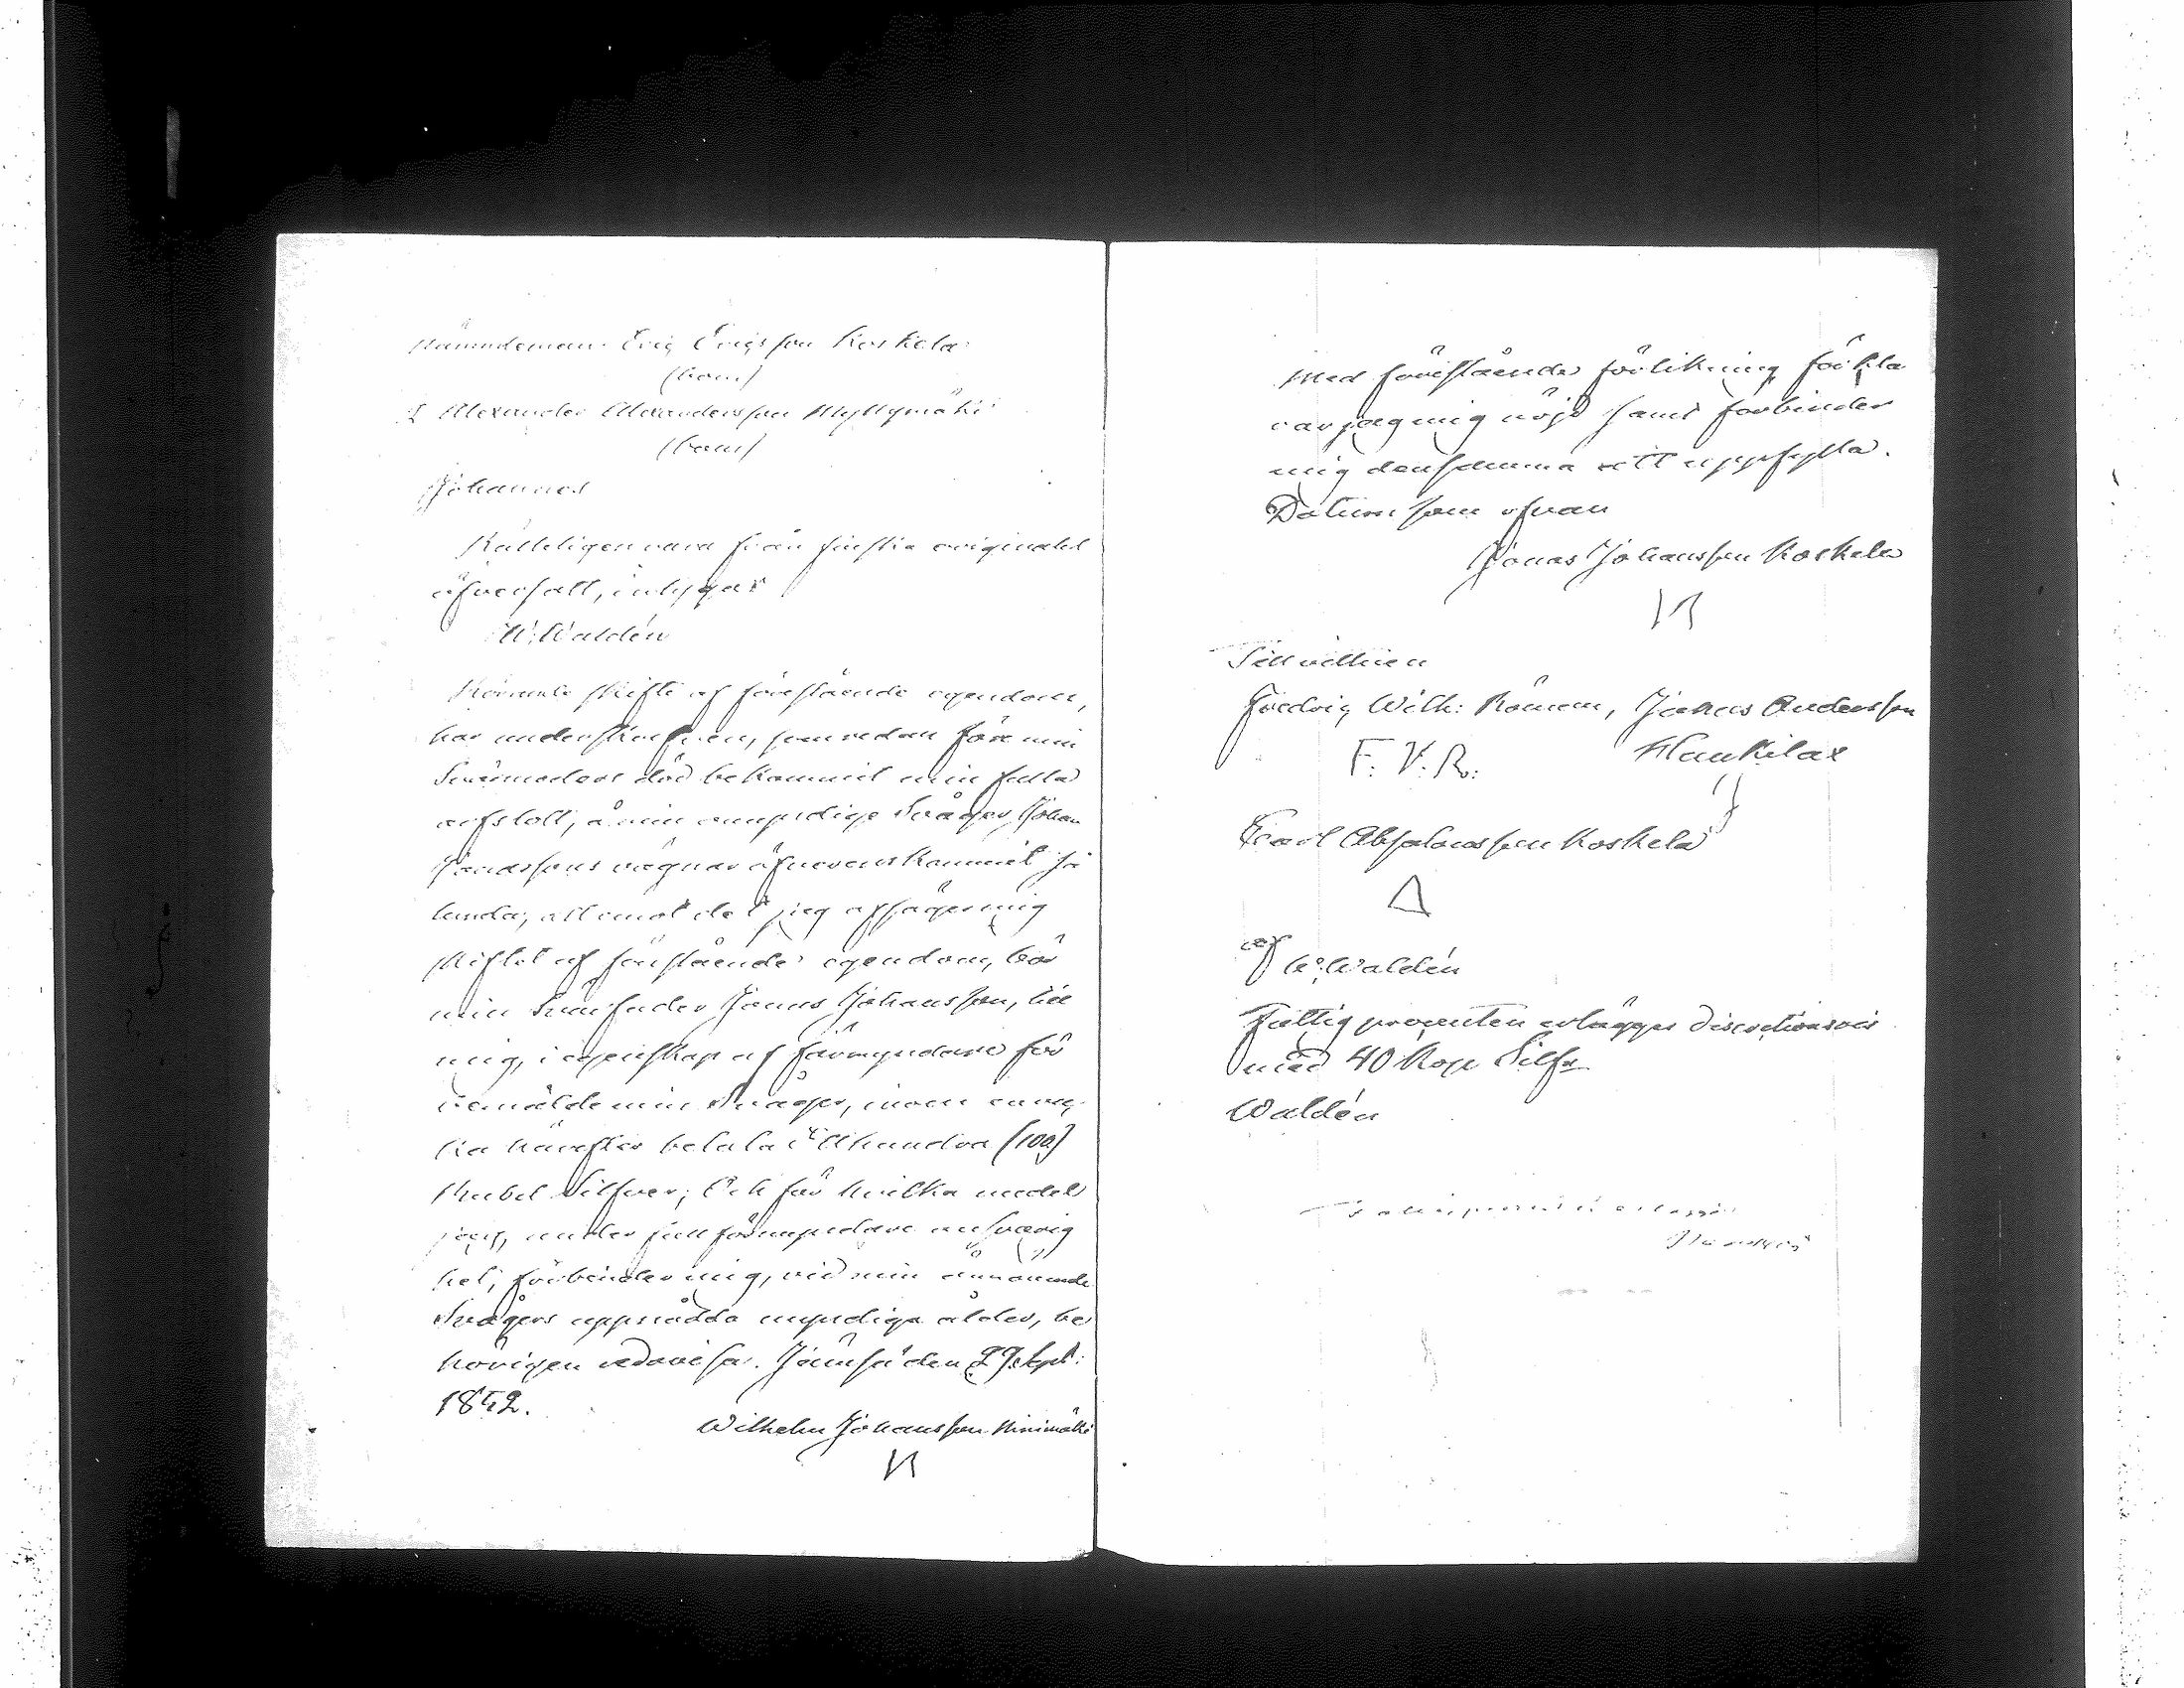 Nämndeman Eric Ericsson Koskela
(bom)
& Alexander Alexandersson Myllymäki
(bom)
Johannes
Rätteligen vara från finska originalet
öfversatt, intygar
W. Waldén
Rörande skifte af förestående egendom,
har underskrefven, som redan före min
Svärmoders död bekommit min fulla
arfslott, å min omyndige Svåger, Johan
Jonassons vägnar öfverenskommit så
lunda, att emot det jag afsäger mig
skiftet af förestående egendom, bör
min Svärfader Jonas Johansson, till
mig, i egenskap af förmyndare för
bemälde min Svåger, inom en vec
ka härefter betala Etthundra (100)
Rubel Silfver; Och för hvilka medel
jag, under full förmyndare ansvarig
het, förbinder mig, vid min omnämnde
Svågers uppnådda myndiga ålder, be
hörigen redovisa. Jämsä den 29 Sept:
1842.
Wilhelm Johansson Niinimäki
Med förestående förlikning förkla
rar jag mig nöjd samt förbinder
mig densamma att uppfylla.
Datum som ofvan
Jonas Johansson Koskela
Till vittnen
Fredric Wilh: Roman, Johan Andersson
F. V. R. Haukilax
Carl Absalonsson Koskela
af W. Waldén
Fattig procenten erlägges discretionsvis
med 40 Kop Silfr
Waldén
Fattigprocenten erlagd